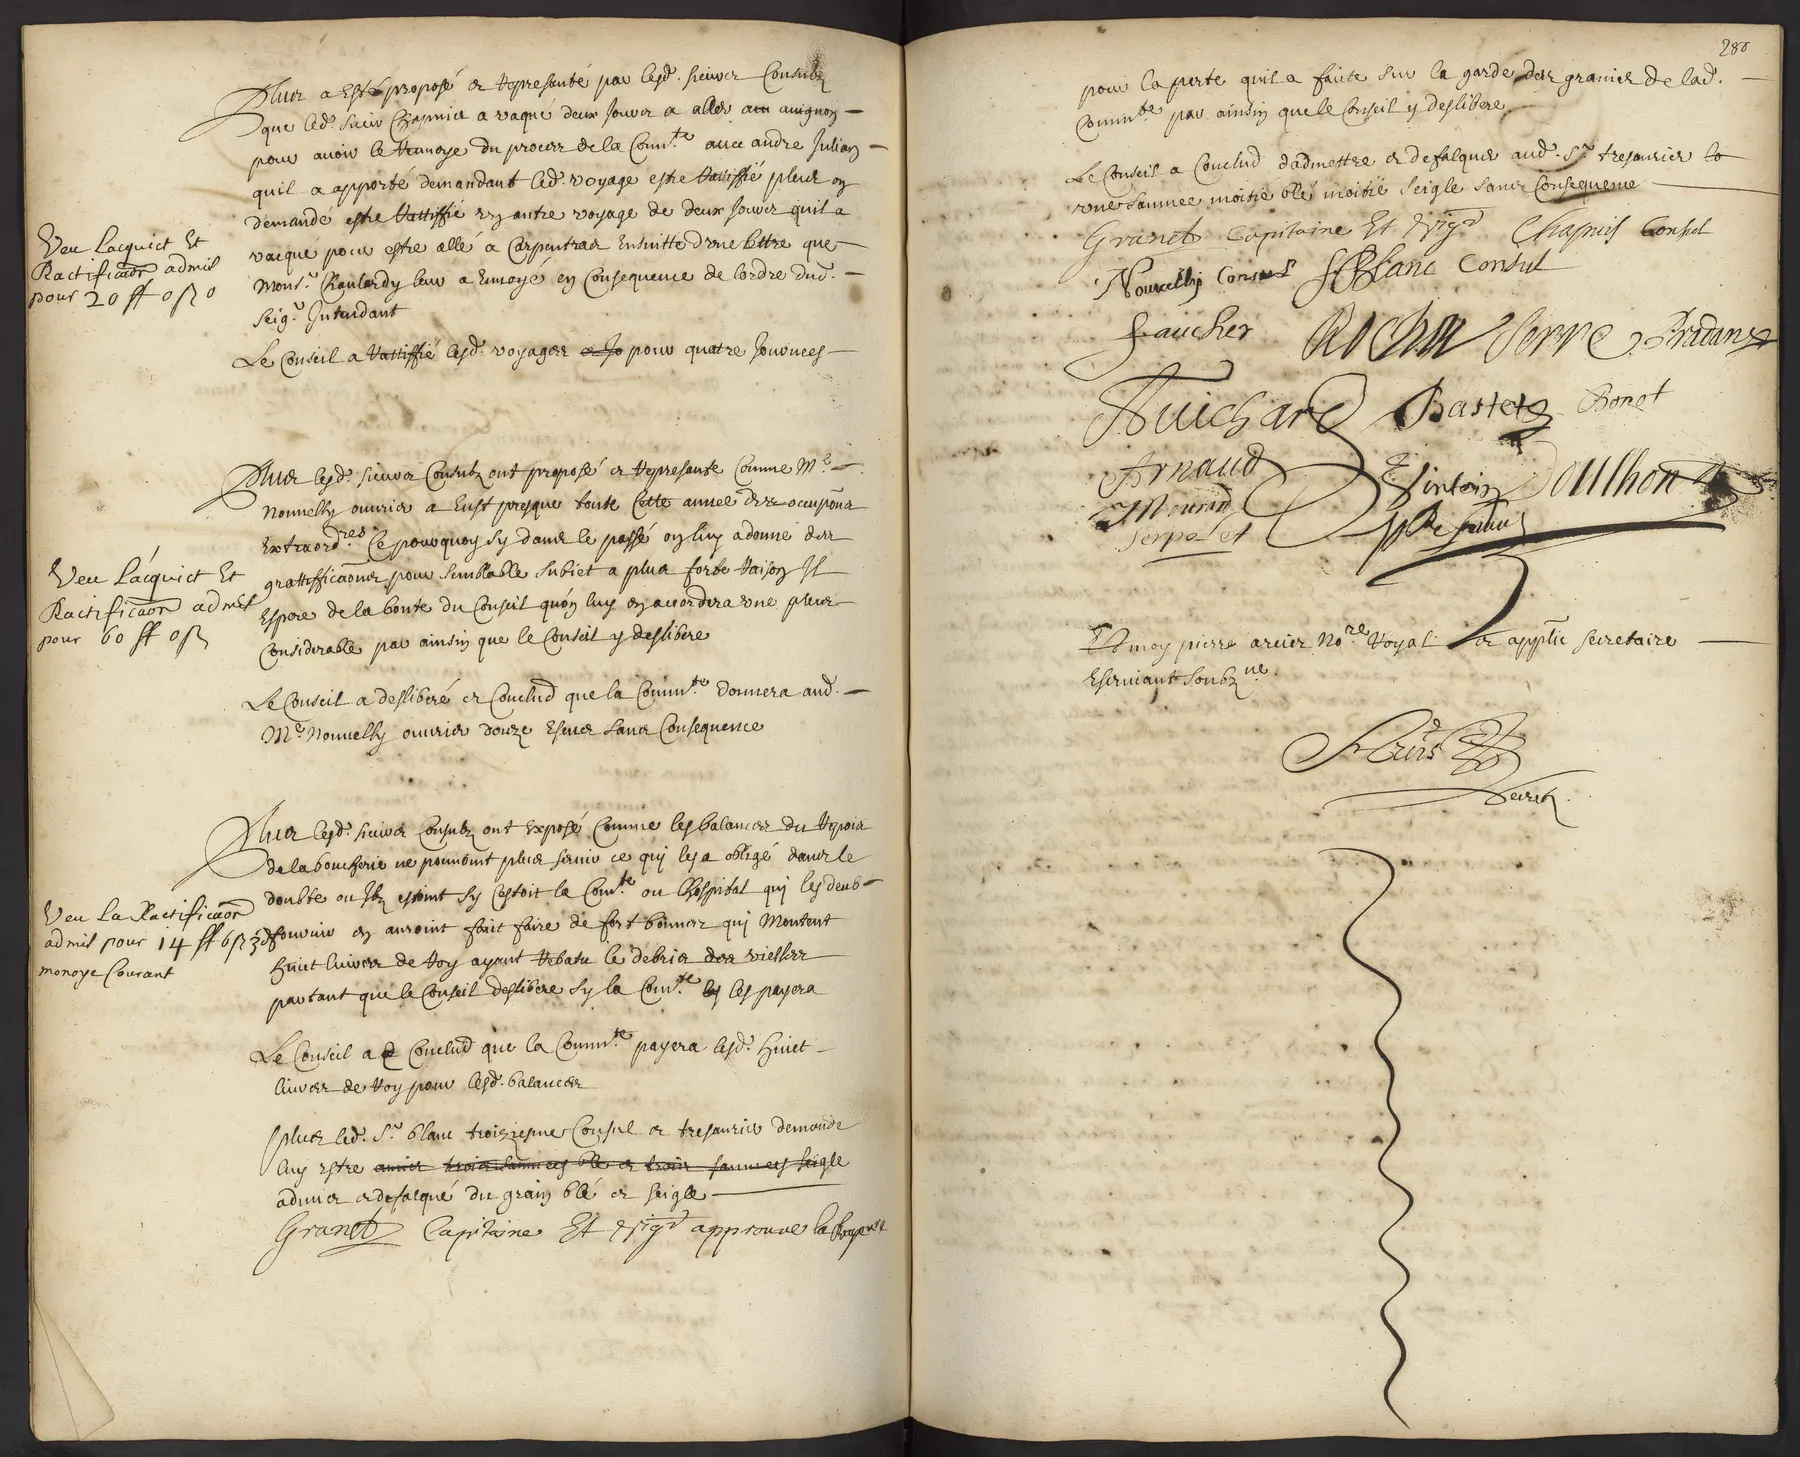 Plus a esté proposé et representé par lesd. sieurs Consulz
que led. sieur Chapuis a vaqué deux jours a aller a avignon
pour avoir le renvoye du procez de la Comm.te avec andre Julian
quil a apporté demandant led. voyage estre rattiffié plus on
demandé estre rattiffié un autre voyage de deux jours quil a
vacqué pour estre allé a Carpentras ensuitte dune lettre que
Mons.r Raulardy leur a envoyé en Consequence de lordre dud.
Seig.r Intendant
Le Conseil a rattiffié lesd. voyages pour quatre journées
Veu Lacquict Et
Ractificaōn admis
pour 20 ff 0 ß 0
Plus lesd. sieurs Consulz ont proposé et representé Comme M.e
Nouvelly ouvrier a eust presque toute cette année des occupōns
Extraord.res Ce pourquoy sy dans le passé on luy a donné des
grattifficaōnes pour semblable subiet a plus forte raison Il
Espere de la bonte du Conseil quon luy en accordera une plus
Considerable par ainsin que le Conseil y deslibere
Veu Lacquict Et
Ractificaōn admis
pour 60 ff 0 ß
Le Conseil a desliberé et Conclud que la Comm.te donnera aud.
M.e Nouvelly ouvrier douze escus sans Consequence
Plus lesd. sieurs Consulz ont exposé Comme les balances du
de la boucherie ne pouvoint plus servir ce qui les a obligé dans le
doubte ou Ilz estoint sy cestoit la Com.te ou lhospital qui les deub
fournir en auroint fait faire de fort bonnes qui Montent
huict livres de Roy ayant rebatu le debris des vielles
partant que le Conseil deslibere sy la Com.te les payera
Veu La Ractificaōn
admis pour 14 ff 6 ß 3 d
monoye Courant
Le Conseil a Conclud que la Comm.te payera lesd. huict
livres de Roy pour lesd. balances
Plus led. S.r blanc troiziesme Consul et tresaurier demande
luy estre trois saumees blé et trois saumees seigle
admis et defalqué du grain blé et seigle
Granet Capitaine Et Vig.r approuve la
280
pour la perte quil a faite sur la garde des granies de lad.
Comm.te par ainsin que le Conseil y deslibere
Le Conseil a Conclud dadmettre et defalquer aud. S.r tresaurier
une saumee moitie blé moitié seigle sans Consequence
Granet Capitaine Et Vig.r Chapuis Consul
Nouvelly Consul Blanc Consul
Faucher Rochin Serre Pradane
Guichard Bastet Bonet
Arnaud Doulhon
Mourard
Serpolet
Et moy pierre arcier No.re Royal et secretaire
Escrivant soubz.ne